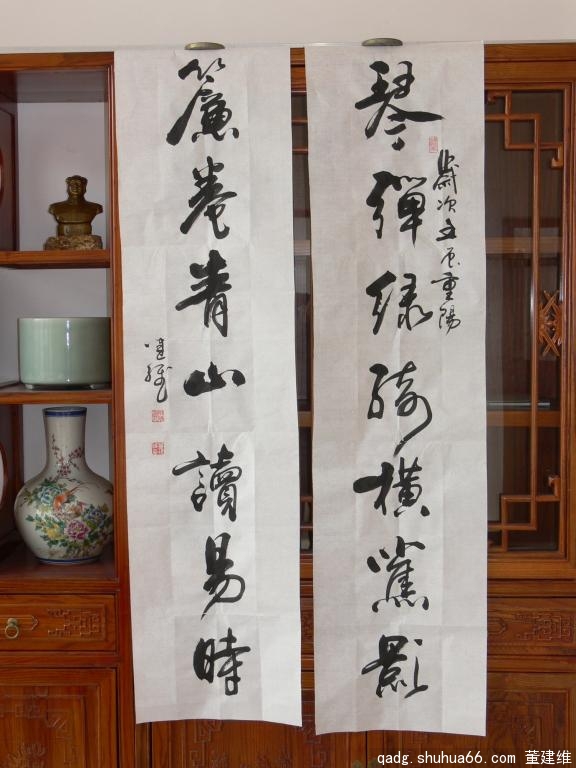 琴彈綠綺橫影
歲次壬辰重陽
簾卷青山讀易時
建維
qadg.shuhua66.com 董建维